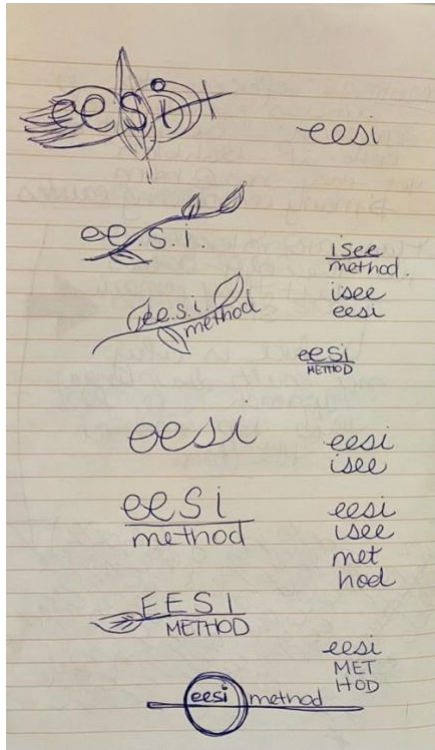 eesi
eesi
ee.s.i.
isee
method.
e.e.s.i.
method
isee
eesi
eesi
METHOD
eesi
eesi
isee
eesi
method
eesi
isee
met
hod
EESI
METHOD
eesi
MET
HOD
eesi method